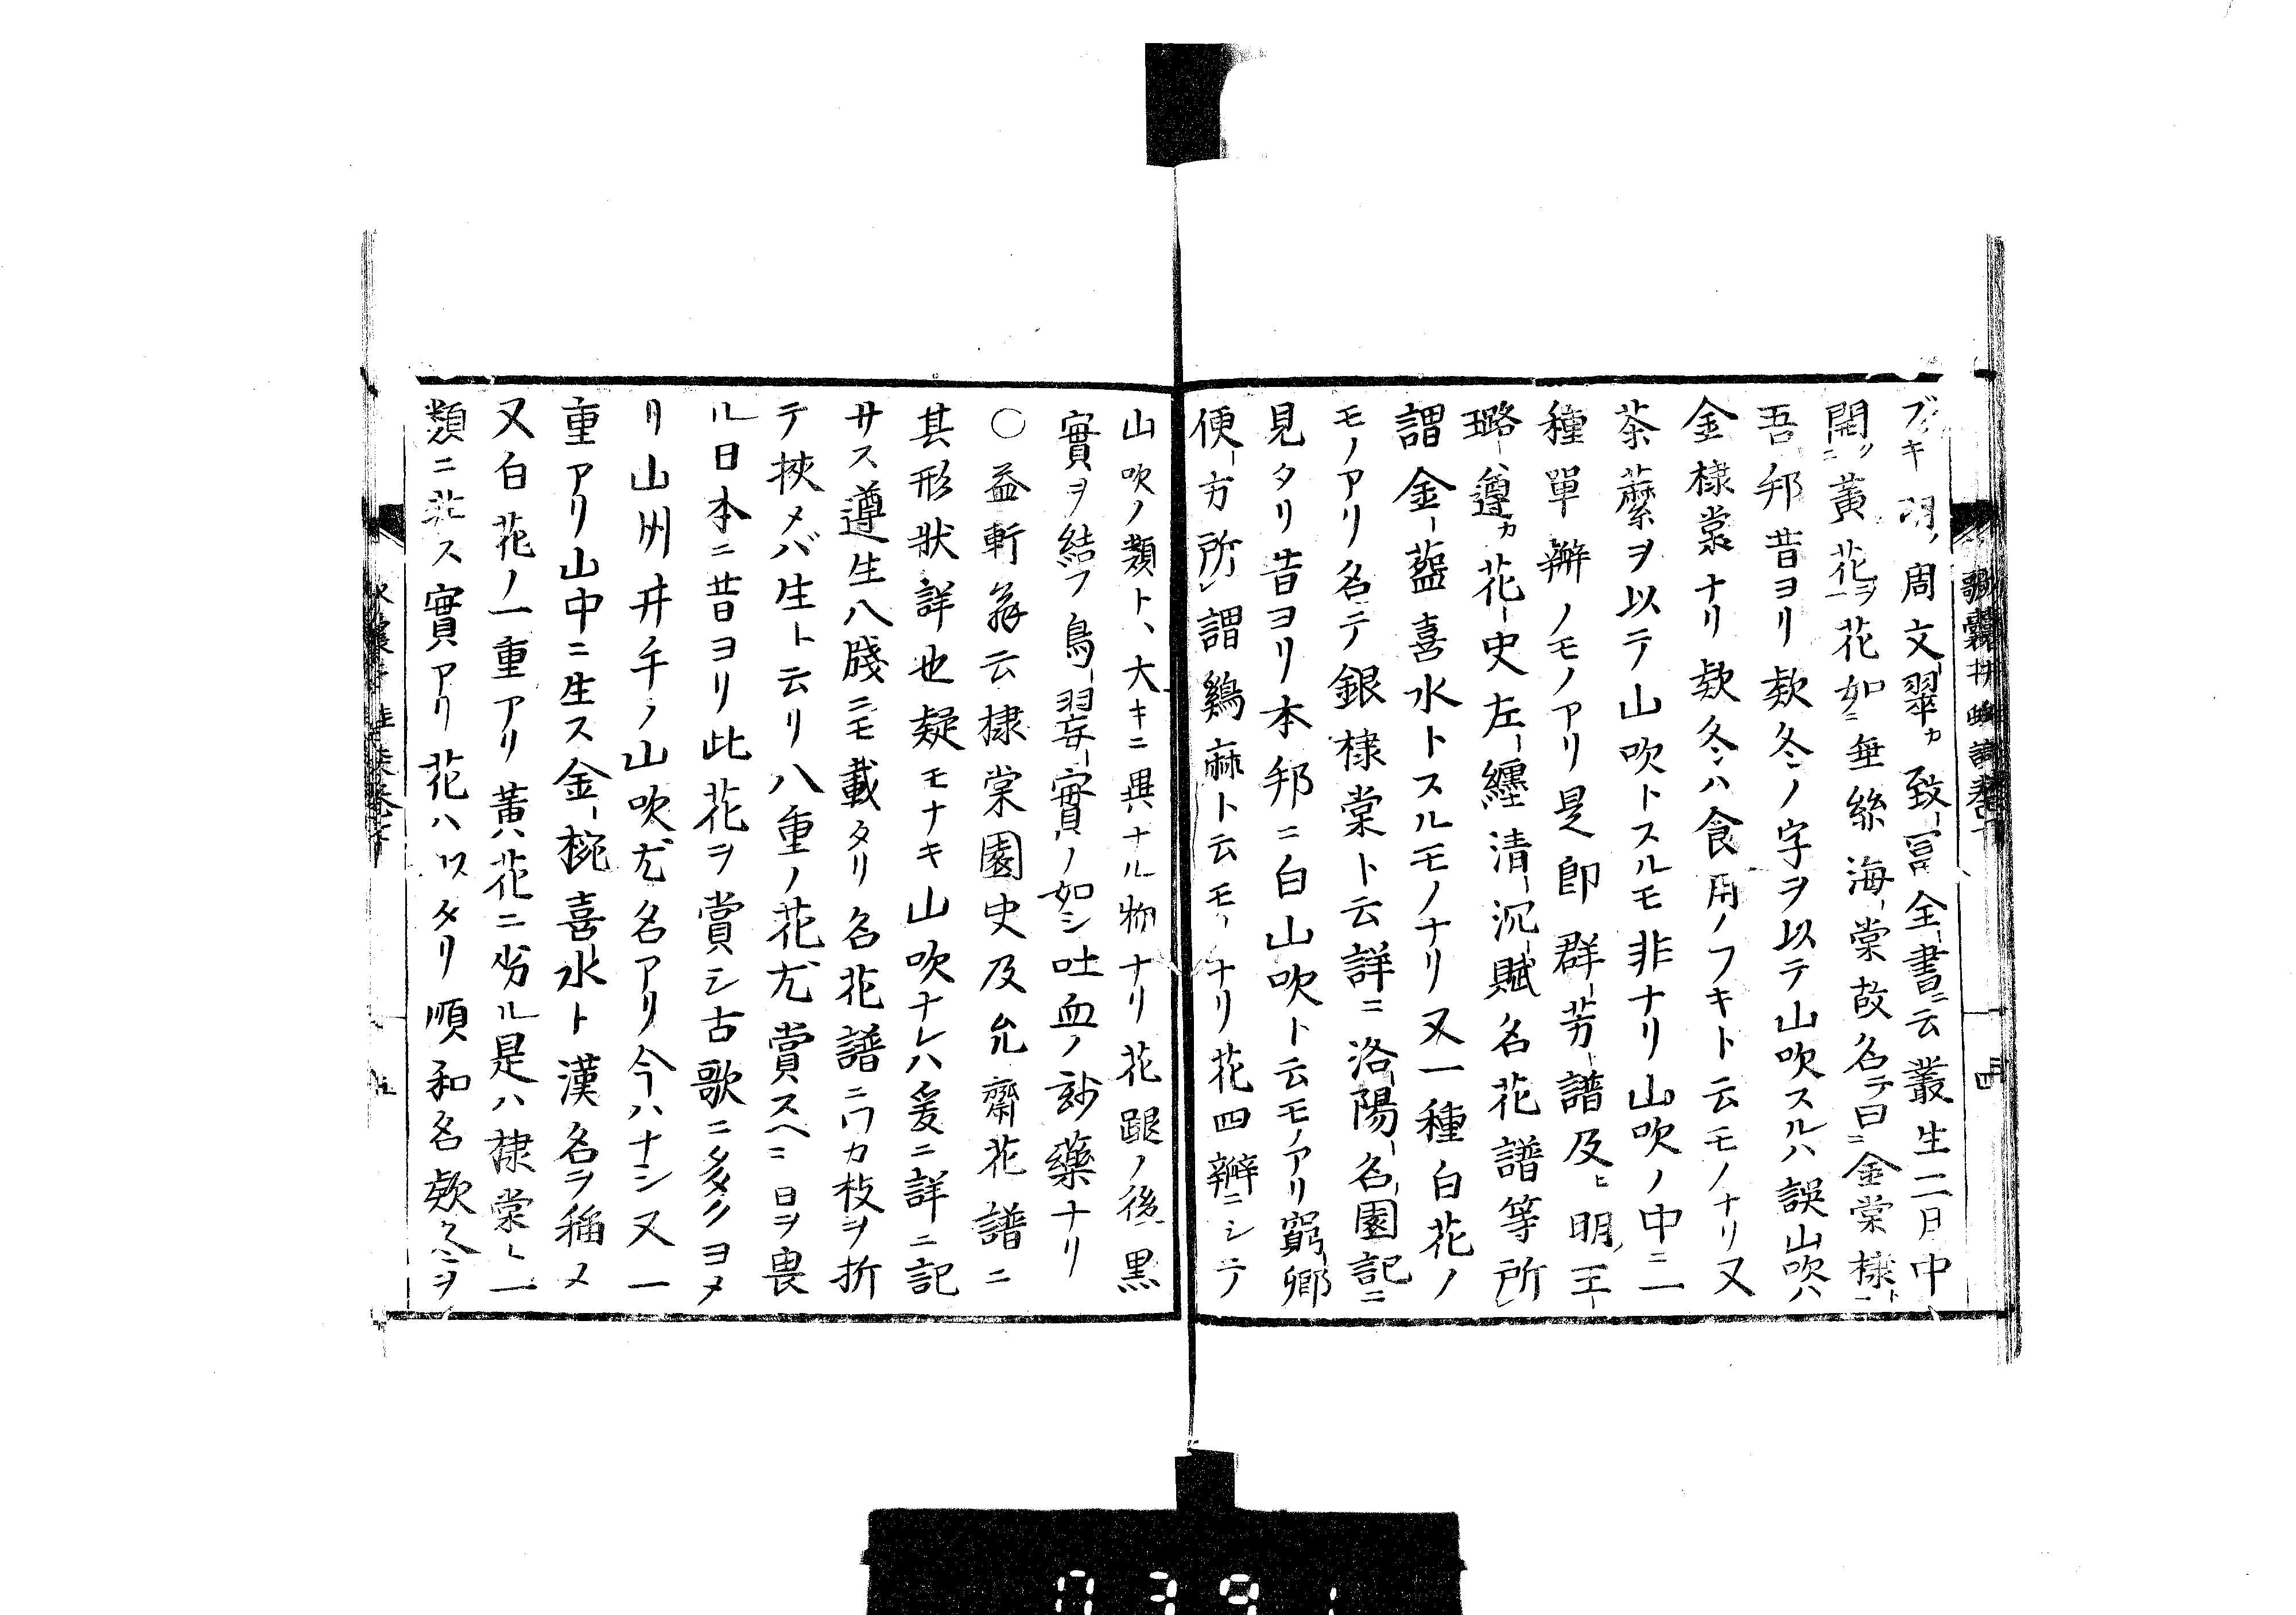 ブキ明ノ周文翠カ致富全書ニ云叢生二月中
開ク黃花ヲ花如ニ垂絲海棠故名テ曰ニ金棠棣ト
吾邦昔ヨリ欵冬ノ字ヲ以テ山吹スルハ誤山吹ハ
金棣棠ナリ欵冬ハ食用ノフキト云モノナリ又
茶蘪ヲ以テ山吹トスルモ非ナリ山吹ノ中ニ一
種單瓣ノモノアリ是即群芳譜及ヒ明ノ王
璐遵カ花史左纏清沉賦名花譜等所
謂金盌喜水トスルモノナリ又一種白花ノ
モノアリ名テ銀棣棠ト云詳ニ洛陽名園記ニ
見タリ昔ヨリ本邦ニ白山吹ト云モノアリ窮鄉
便方所謂鷄麻ト云モノナリ花四瓣ニシテ
山吹ノ類トハ大キニ異ナル物ナリ花謝ノ後黑
實ヲ結フ鳥翣實ノ如シ吐血ノ玅藥ナリ
○益軒翁云棣棠園史及允齋花譜ニ
其形狀詳也疑モナキ山吹ナレハ爰ニ詳ニ記
サス遵生八牋ニモ載タリ名花譜ニワカ枝ヲ折
テ挾メバ生ト云リ八重ノ花尤賞スヘニ日ヲ畏
ル日本ニ昔ヨリ此花ヲ賞シ古歌ニ多クヨメ
リ山州井手ノ山吹尤名アリ今ハナシ又一
重アリ山中ニ生ス金椀喜水ト漢名ヲ稱メ
又白花ノ一重アリ黃花ニ劣ル是ハ棣棠ト一
類ニ非ス實アリ花ハ以タリ順和名欵冬ヲ
0391